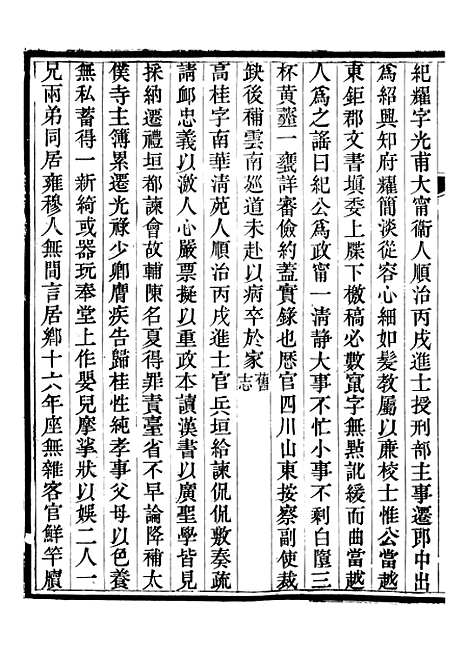 紀耀字光甫大甯衞人順治丙戌進士授刑部主事遷郎中出
爲紹興知府耀簡淡從容心細如髮教屬以廉校士惟公當越
東鉅郡文書塡委上牒下檄稿必數竄字無點訛緩而當越
人爲之謠曰紀公爲政甯一清靜大事不忙小事不剩白簠三
杯黃虀一甕詳審儉約蓋實錄也歴官四川山東按察副使裁
缺後補雲南廵道未赴以病卒於家舊志
高桂字南華淸苑人順治丙戌進士官兵垣給諫侃侃敷奏疏
請衈忠義以激人心嚴票擬以重政本讀漢書以廣聖學皆見
採納遷禮垣都諫會故輔陳名夏得罪責臺省不早論降補太
僕寺主簿累遷光祿少卿膺疾告歸桂性純孝事父母以色養
無私蓄得一新綺或器玩奉堂上作嬰兒摩挲狀以娛二人一
兄兩弟同居雍穆人無間言居鄉十六年座無雜客官鮮竿牘